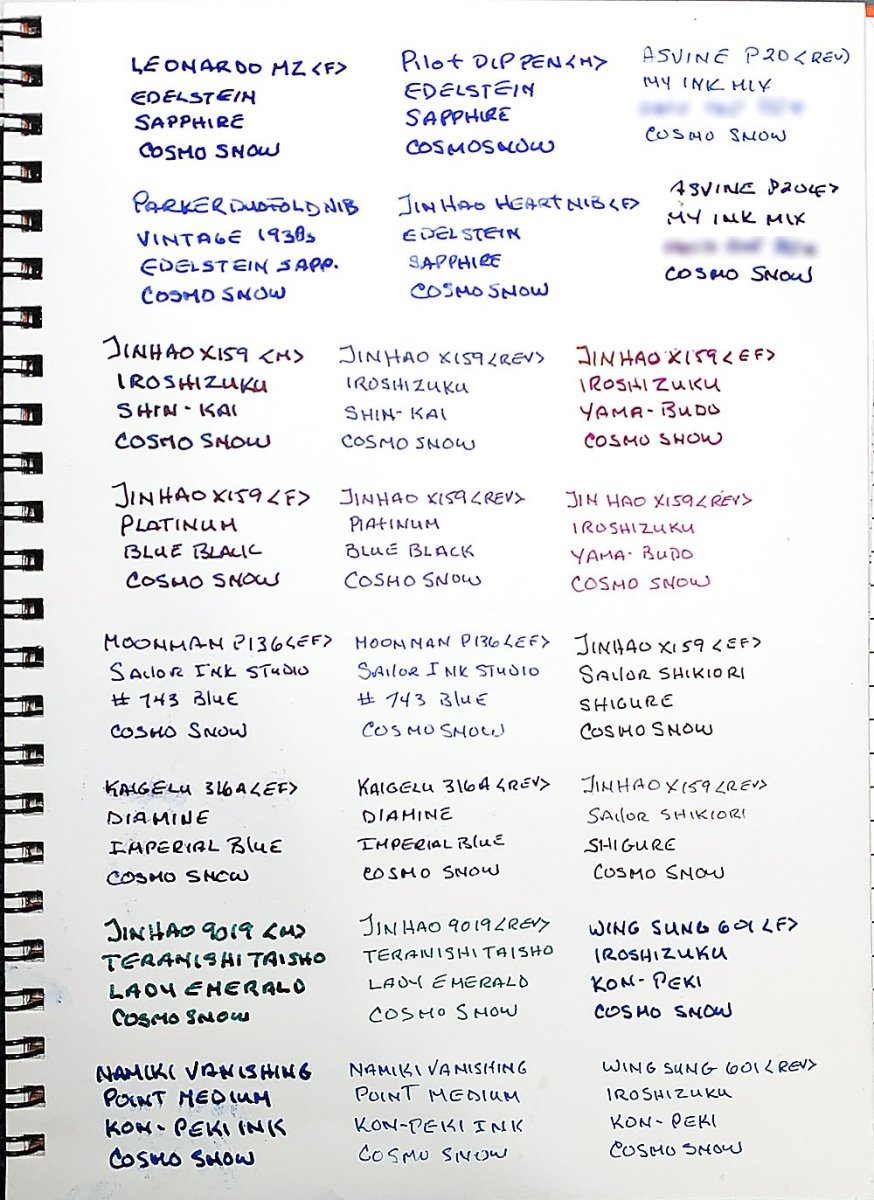 LEONARDO MZ <F>
EDELSTEIN
SAPPHIRE
COSMO SNOW
Pilot DIP PEN <M>
EDELSTEIN
SAPPHIRE
COSMOSNOW
ASVINE P20 <REV)
MY INK MIX
COSMO SNOW
PARKER DUOFOLD NIB
VINTAGE 1930s
EDELSTEIN SAPP.
COSMO SNOW
JINHAO HEART NIB <F>
EDELSTEIN
SAPPHIRE
COSMO SNOW
ASVINE P20 <F>
MY INK MIX
COSMO SNOW
JINHAO X159 <M>
IROSHIZUKU
SHIN-KAI
COSMO SNOW
JINHAO X159 <REV>
IROSHIZUKU
SHIN-KAI
COSMO SNOW
JINHAO X159 <EF>
IROSHIZUKU
YAMA-BUDO
COSMO SNOW
JINHAO X159 <F>
PLATINUM
BLUE BLACK
COSMO SNOW
JINHAO X159 <REV>
PlATINUM
BLUE BLACK
COSMO SNOW
JIN HAO X159 <REV>
IROSHIZUKU
YAMA-BUDO
COSMO SNOW
MOONMAN P136 <EF>
SAilOR INK STUDIO
# 743 Blue
COSMO SNOW
MOONMAN P136 <EF>
SAilOR INK STUDIO
# 743 Blue
COSMO SNOW
JINHAO X159 <EF>
SAilOR SHIKIORI
SHIGURE
COSMO SNOW
KAIGELU 316A <EF>
DIAMINE
IMPERIAL BlUE
COSMO SNOW
KAIGELU 316A <REV>
DIAMINE
IMPERIAL BlUE
COSMO SNOW
JINHAO X159 <REV>
SAilOR SHIKIORI
SHIGURE
COSMO SNOW
JINHAO 9019 <M>
TERANISHI TAISHO
LADY EMERALD
COSMO SNOW
JINHAO 9019 <REV>
TERANISHI TAISHO
LADY EMERALD
COSMO SNOW
WING SUNG 601 <F>
IROSHIZUKU
KON-PEKI
COSMO SNOW
NAMIKI VANISHING
POINT MEDIUM
KON-PEKI INK
COSMO SNOW
NAMIKI VANISHING
POINT MEDIUM
KON-PEKI INK
COSMO SNOW
WING SUNG 601 <REV>
IROSHIZUKU
KON-PEKI
COSMO SNOW